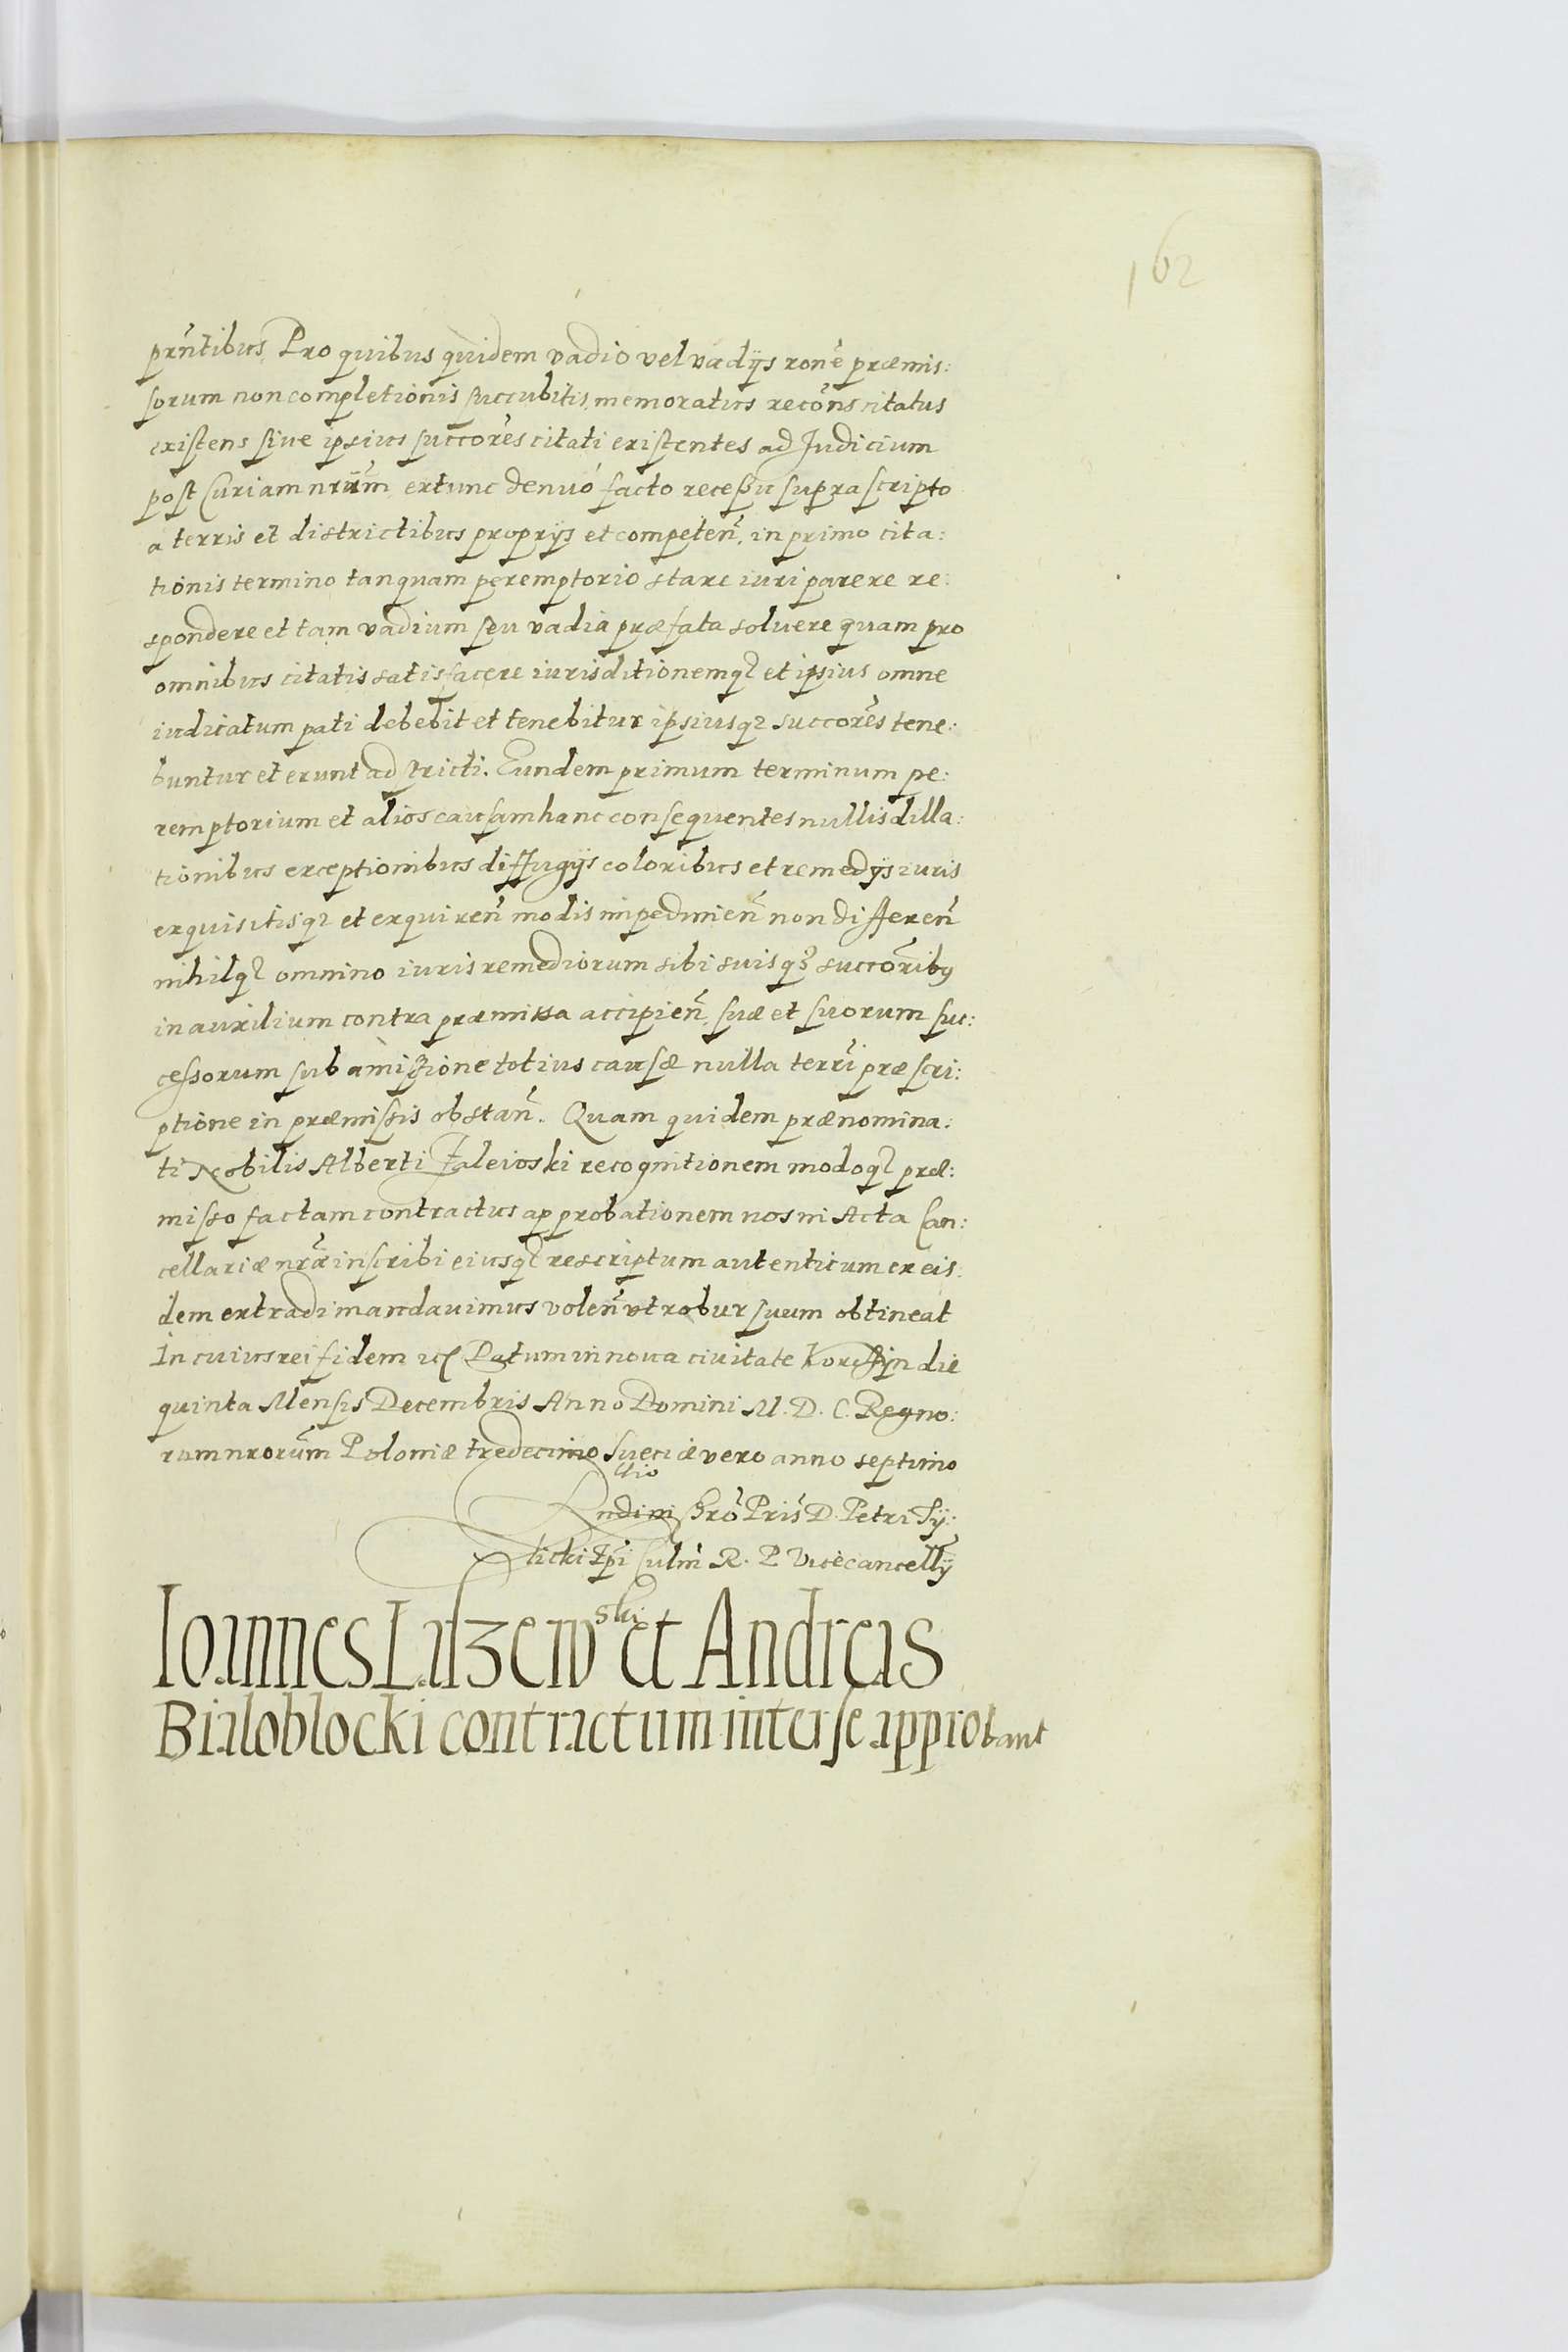 162
prn̄tibus. Pro quibus quidem vadio vel vadijs rone præmis:
sorum non completionis succubitis, memoratus recōns citatus
existens siue ipsius succōres citati existentes ad Judicium
post Curiam nrūm extunc denuò facto recessu supra scripto
a terris et districtibus proprijs et competen̄. in primo cita:
tionis termino tanquam peremptorio stare iuri parere re:
spondere et tam vadium seu vadia præfata soluere quam pro
omnibus citatis satisfacere iurisditionemq₃ et ipsius omne
iudicatum pati debebit et tenebitur ipsiusq₃ succōres tene:
buntur et erunt adstricti. Eundem primum terminum pe:
remptorium et alios causam hanc consequentes nullis dilla:
tionibus exceptionibus diffugijs coloribus et remedijs iuris
exquisitisq₃ et exquiren̄ modis impedimen̄ non differen̄
nihilq₃ omnino iuris remediorum sibi suisq₃ succōribus
in auxilium contra præmissa accipien̄. suæ et suorum suc:
cessorum sub amissione totius causæ nulla terrī præscri:
ptione in præmissis obstan̄. Quam quidem prænomina:
ti Nobilis Alberti Zaleioski recognitionem modoq₃ præ:
misso factam contractus approbationem nos in Acta Can:
cellariæ nrǣ inscribi eiusq₃ rescriptum autenticum ex eis:
dem extradi mandauimus volen̄ vt robur suum obtineat
In cuius rei fidem etc Datum in noua ciuitate Korczyn die
quinta Mensis Decembris Anno Domini M. D. C. Regno:
rum nrorūm Poloniæ tredecimo Sueciæ vero anno septimo
Rndimi Chrō Pris D. Petri Ty:
licki Epī Culm̄ R. P Vicecancellȳ
Ioannes Luzewski et Andreas
Bialoblocki contractum inter se approbant